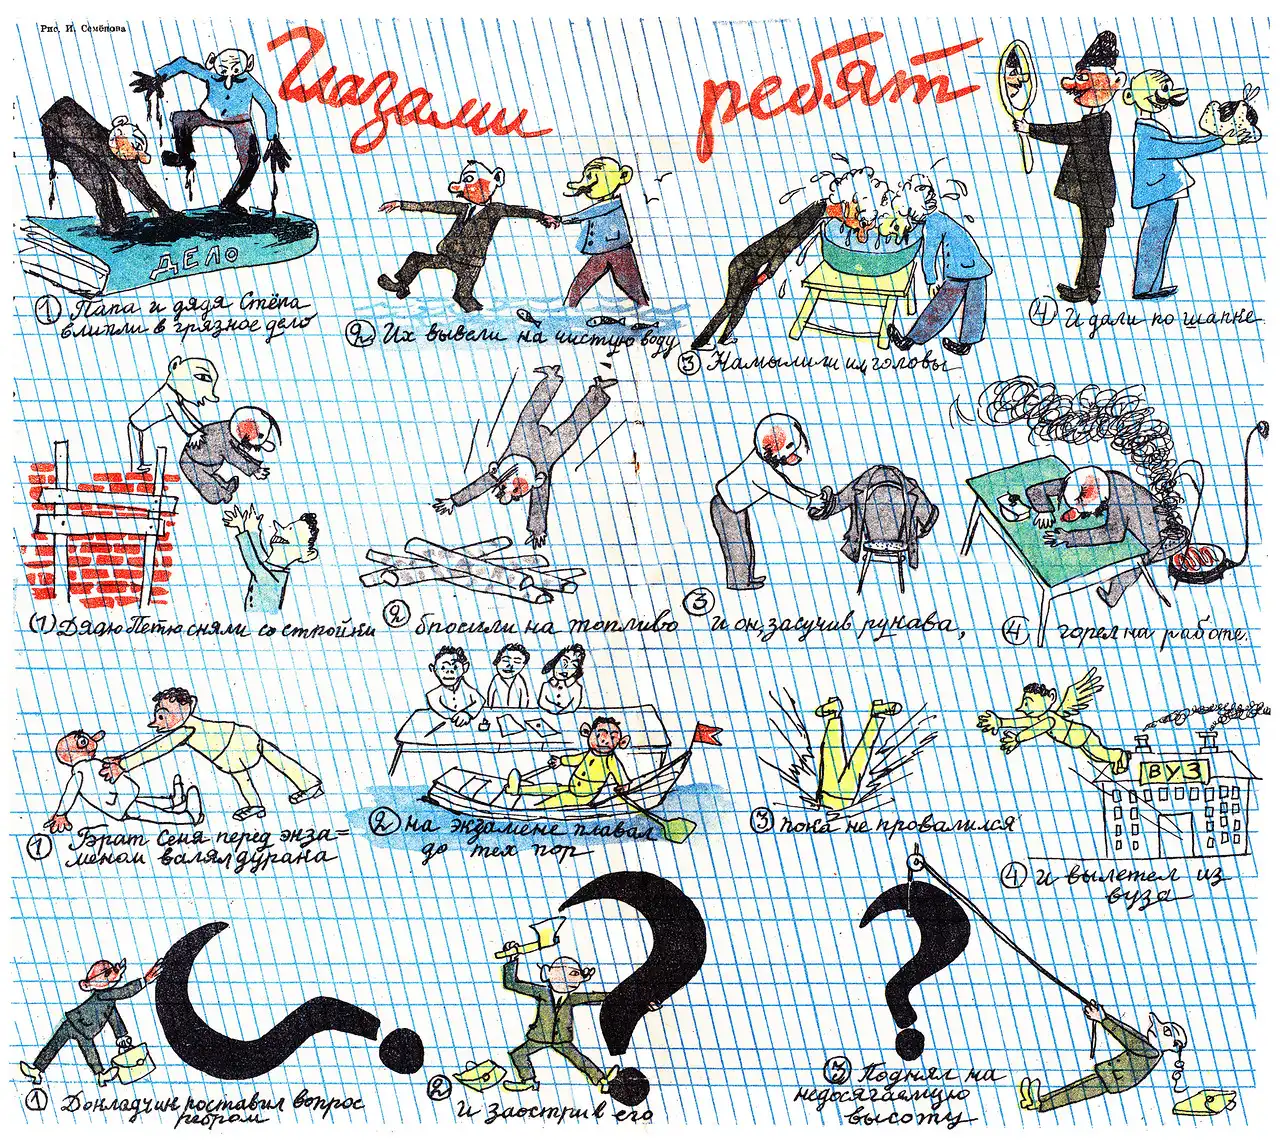 Рис. И. Семёнова
Глазами ребят
ДЕЛО
1 Папа и дядя Стёпа
влипли в грязное дело
2 Их вывели на чистую воду
3 Намылили им головы
4 И дали по шапке
1 Дядю Петю сняли со стройки
2 бросили на топливо
3 и он, засучив рукава,
4 горел на работе.
1 Брат Сеня перед экза=
меном валял дурака
2 на экзамене плавал
до тех пор
3 пока не провалился
ВУЗ
4 и вылетел из
вуза
1 Докладчик поставил вопрос
ребром
2 и заострив его
3 Поднял на
недосягаемую
высоту